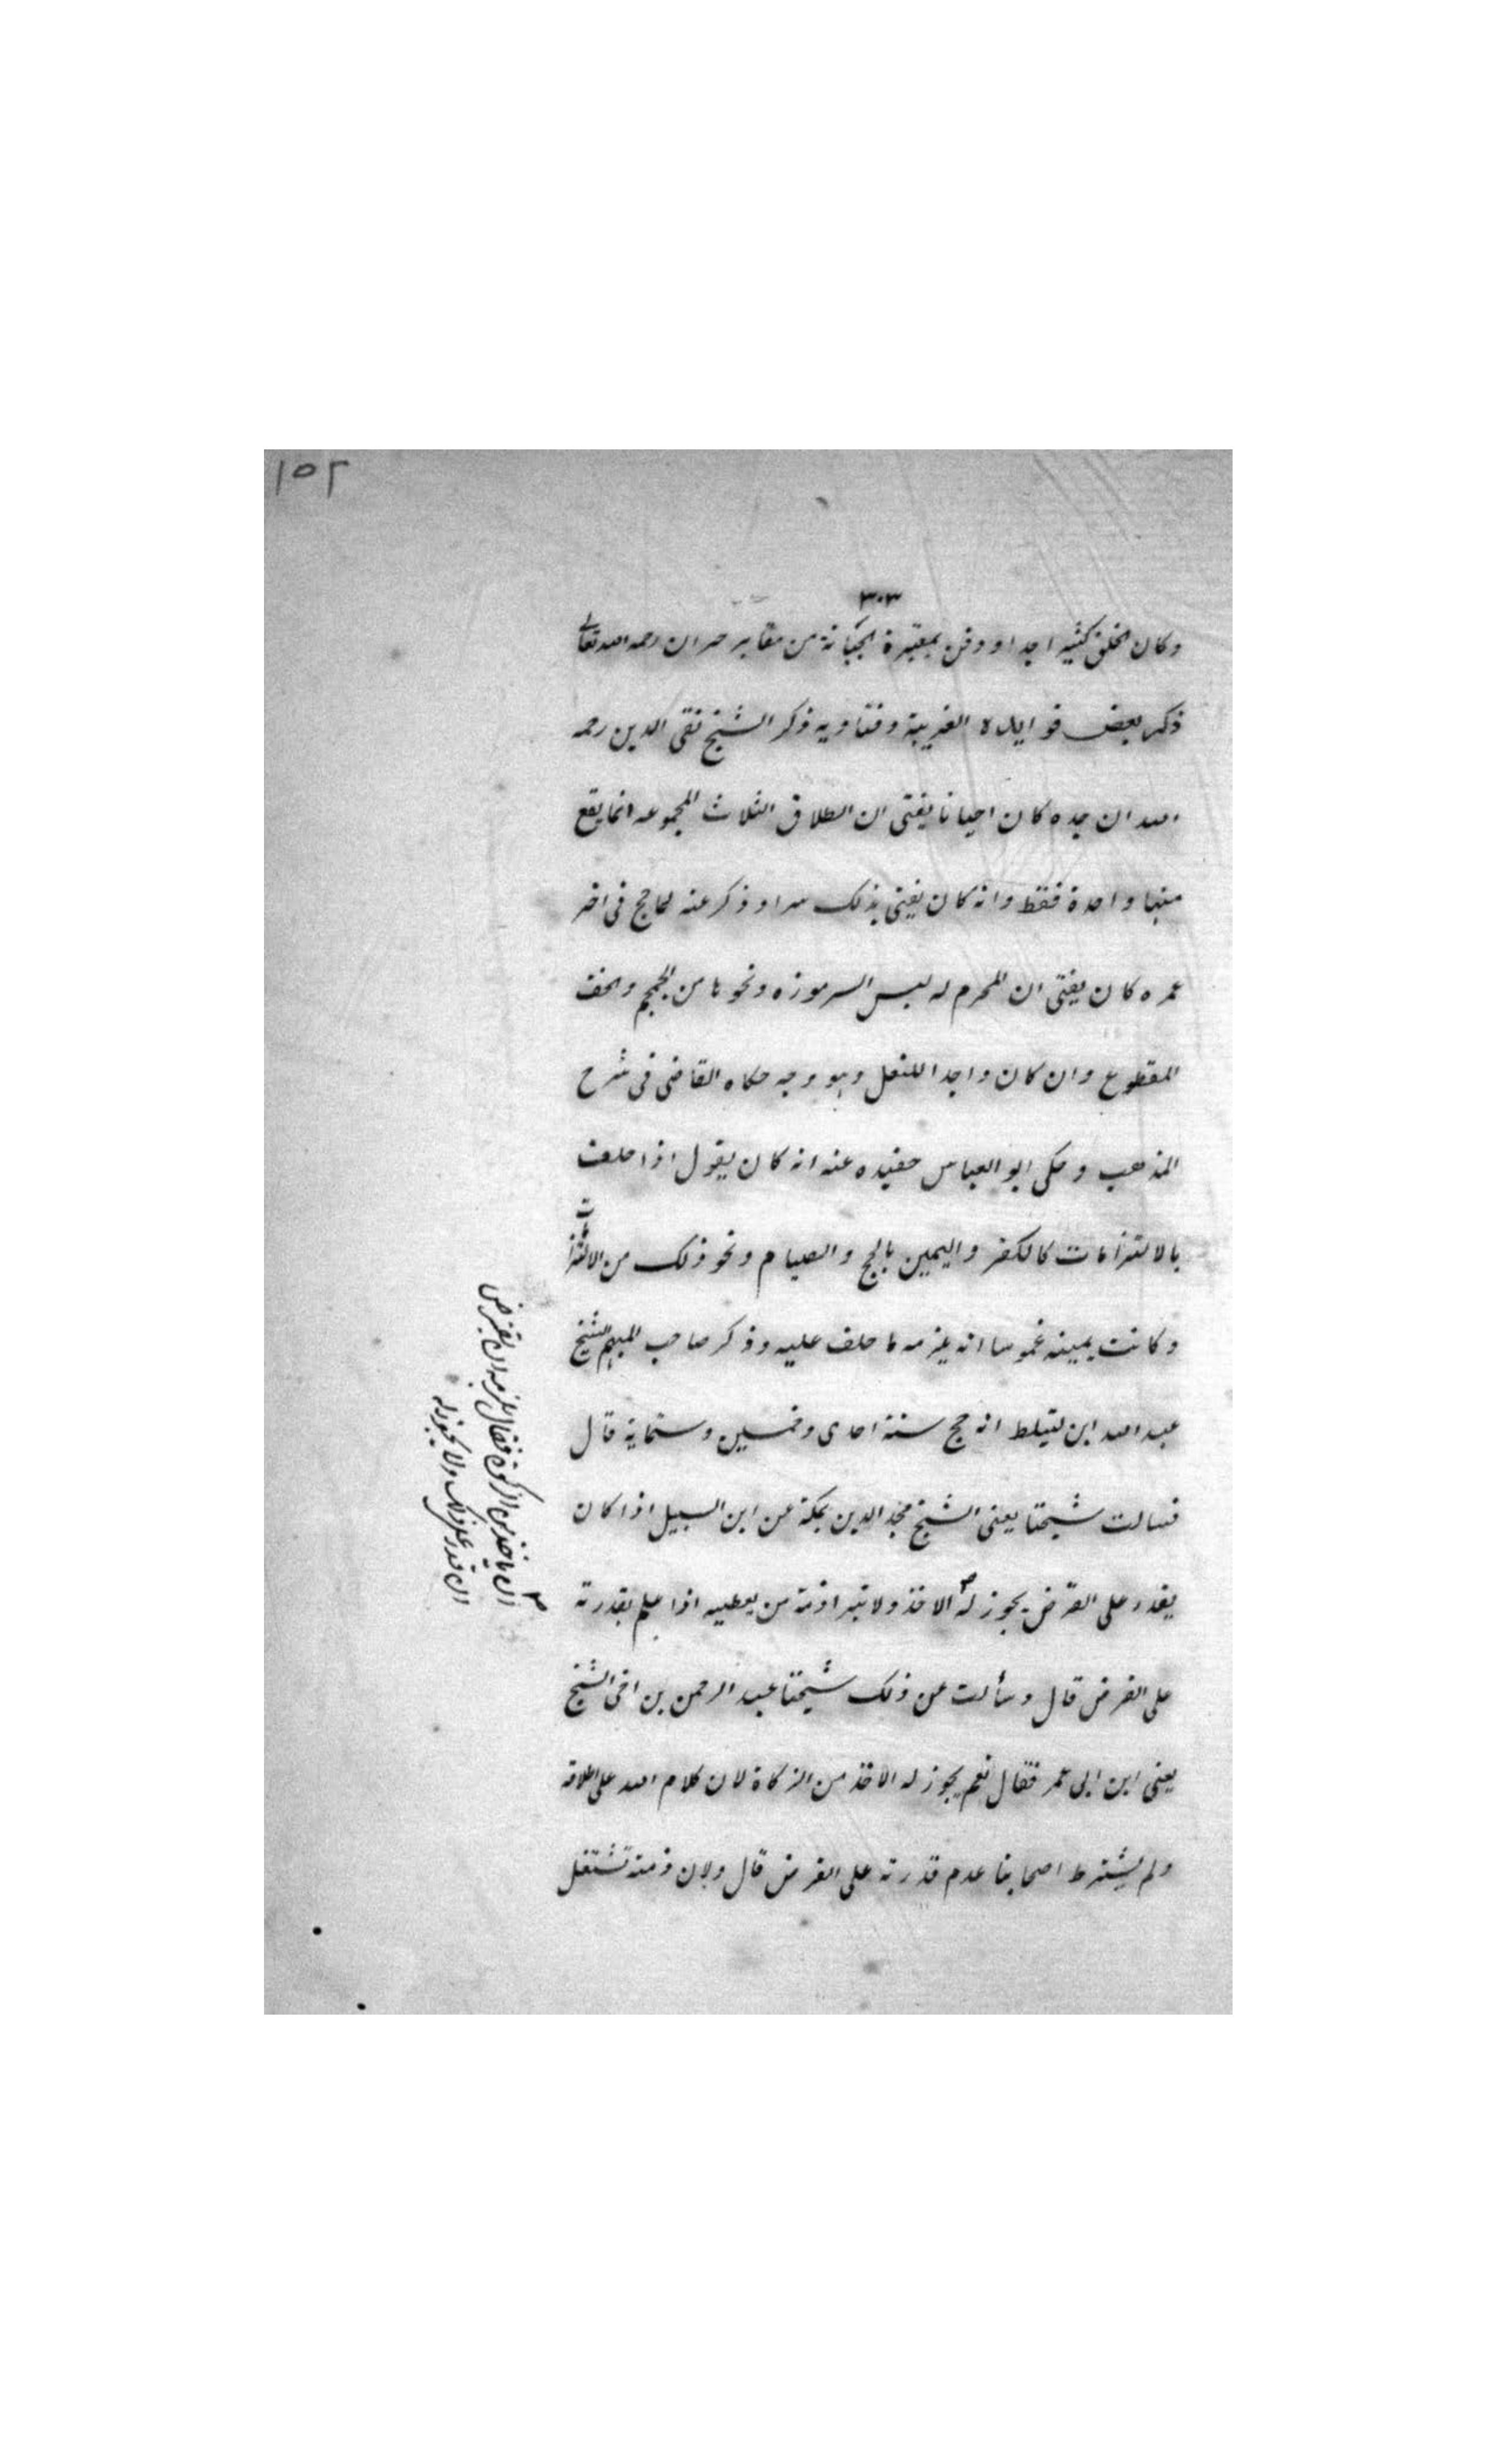 ١٥٢
٣٠٣
وكان الخلق كثيرا جدا ودفن بمقبرة الجبانة من مقابر حران رحمه الله تعالى
ذكر بعض فوايده الغريبة وفتاويه ذكر الشيخ تقى الدين رحمه
الله ان جده كان احيانا يفتى ان الطلاق الثلاث المجموعه انما يقع
منها واحدة فقط وانه كان يفتى بذلك سرا وذكر عنه لما حج فى اخر
عمره كان يفتى ان المحرم له لبس السرموزه ونحوها من الجمجم والخف
المقطوع وان كان واجدا للنعل وهو وجه حكاه القاضى فى شرح
المذهب وحكى ابو العباس حفيده عنه انه كان يقول اذا حلف
بالالتزامات كالكفر واليمين بالحج والصيام ونحو ذلك من الالتزامات
وكانت يمينه غموسا انه يلزمه ما حلف عليه وذكر صاحب المبهم الشيخ
عبد الله ابن انه حج سنة احدى وخمسين وستماية قال
فسالت شيخنا يعنى الشيخ مجد الدين بمكة عن ابن السبيل اذا كان
يقدر على القرض يجوز له الاخذ ولا تبرا ذمة من يعطيه اذا علم بقدرته
على القرض قال وسألت عن ذلك شيخنا عبد الرحمن بن اخى الشيخ
يعنى ابن ابى عمر فقال نعم يجوز له الاخذ من الزكاة لان كلام الله على اطلاقه
ولم يشترط اصحابنا عدم قدرته على القرض قال ولان ذمته تشتغل
ان ياخذ من الزكوة فقال يلزمه ان يقترض
ان قدر على ذلك ولا يجوز له